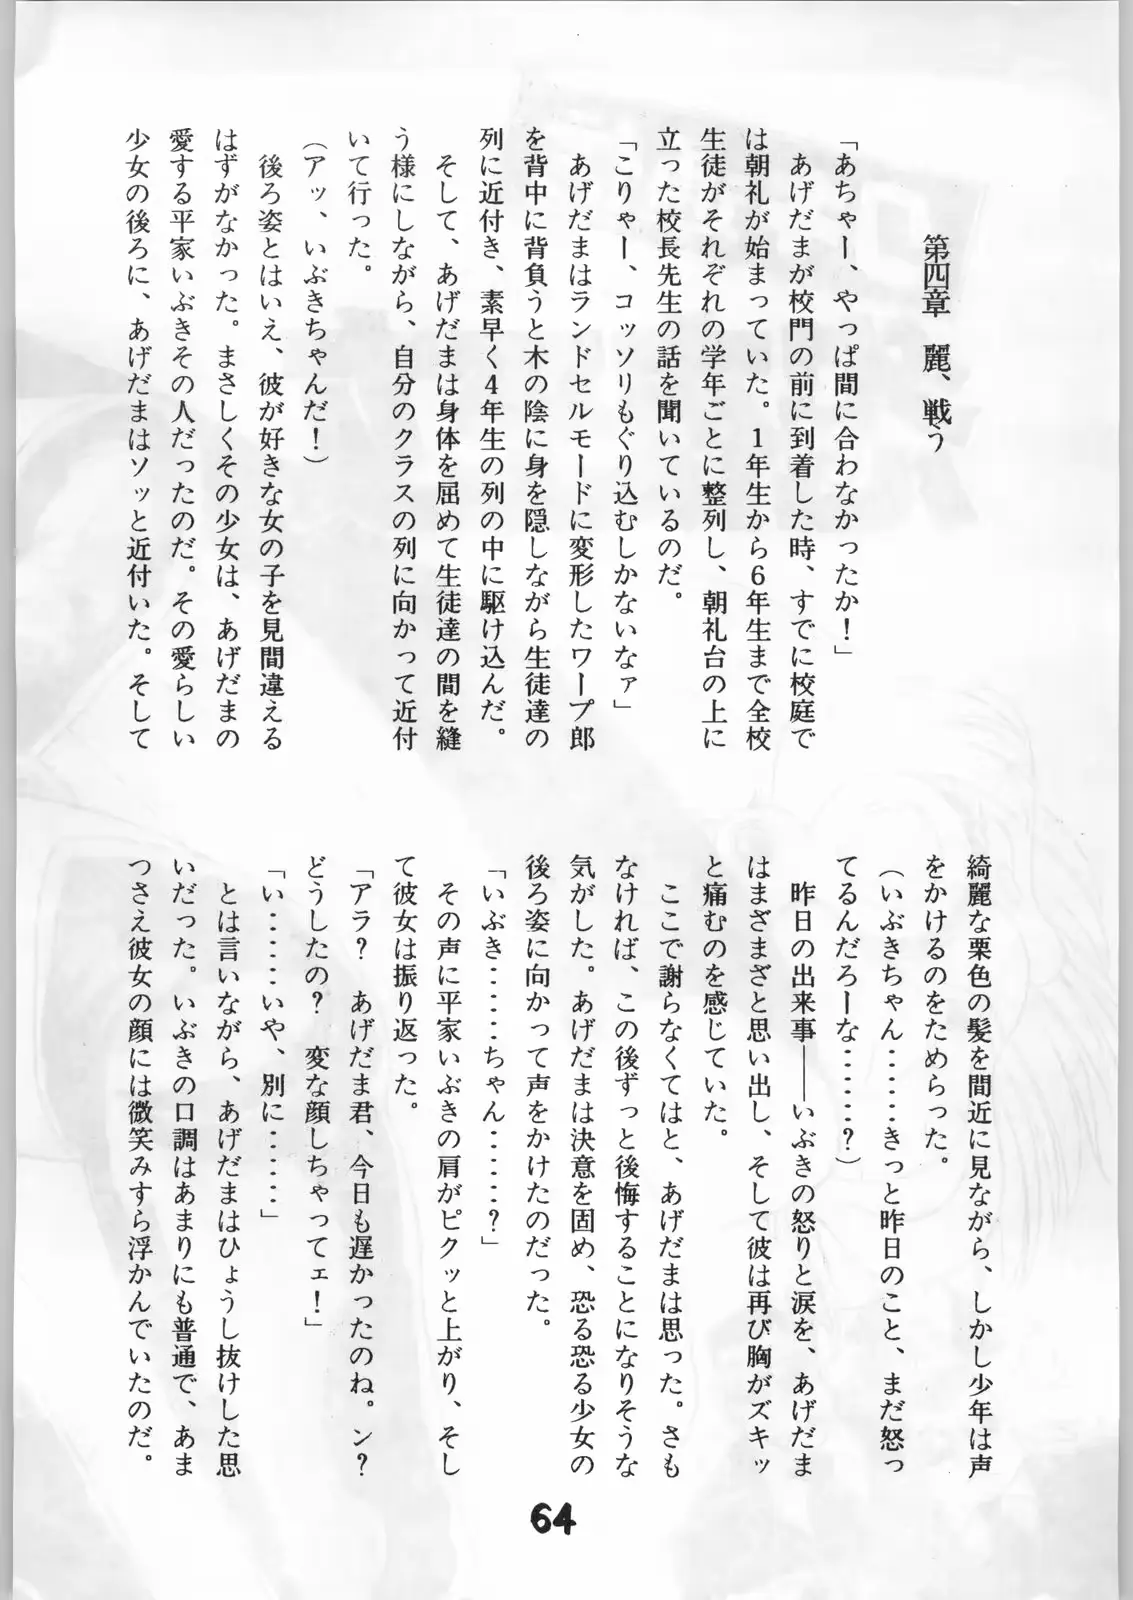 第四章　麗、戦う
「あちゃー、やっぱ間に合わなかったか！」
　あげだまが校門の前に到着した時、すでに校庭で
は朝礼が始まっていた。1年生から6年生まで全校
生徒がそれぞれの学年ごとに整列し、朝礼台の上に
立った校長先生の話を聞いているのだ。
「こりゃー、コッソリもぐり込むしかないなァ」
　あげだまはランドセルモードに変形したワープ郎
を背中に背負うと木の陰に身を隠しながら生徒達の
列に近付き、素早く4年生の列の中に駆け込んだ。
　そして、あげだまは身体を屈めて生徒達の間を縫
う様にしながら、自分のクラスの列に向かって近付
いて行った。
（アッ、いぶきちゃんだ！）
　後ろ姿とはいえ、彼が好きな女の子を見間違える
はずがなかった。まさしくその少女は、あげだまの
愛する平家いぶきその人だったのだ。その愛らしい
少女の後ろに、あげだまはソッと近付いた。そして
綺麗な栗色の髪を間近に見ながら、しかし少年は声
をかけるのをためらった。
（いぶきちゃん……きっと昨日のこと、まだ怒っ
てるんだろーな……？）
　昨日の出来事――いぶきの怒りと涙を、あげだま
はまざまざと思い出し、そして彼は再び胸がズキッ
と痛むのを感じていた。
　ここで謝らなくてはと、あげだまは思った。さも
なければ、この後ずっと後悔することになりそうな
気がした。あげだまは決意を固め、恐る恐る少女の
後ろ姿に向かって声をかけたのだった。
「いぶき……ちゃん……？」
　その声に平家いぶきの肩がピクッと上がり、そし
て彼女は振り返った。
「アラ？　あげだま君、今日も遅かったのね。ン？
どうしたの？　変な顔しちゃってェ！」
「い……いや、別に……」
　とは言いながら、あげだまはひょうし抜けした思
いだった。いぶきの口調はあまりにも普通で、あま
つさえ彼女の顔には微笑みすら浮かんでいたのだ。
64